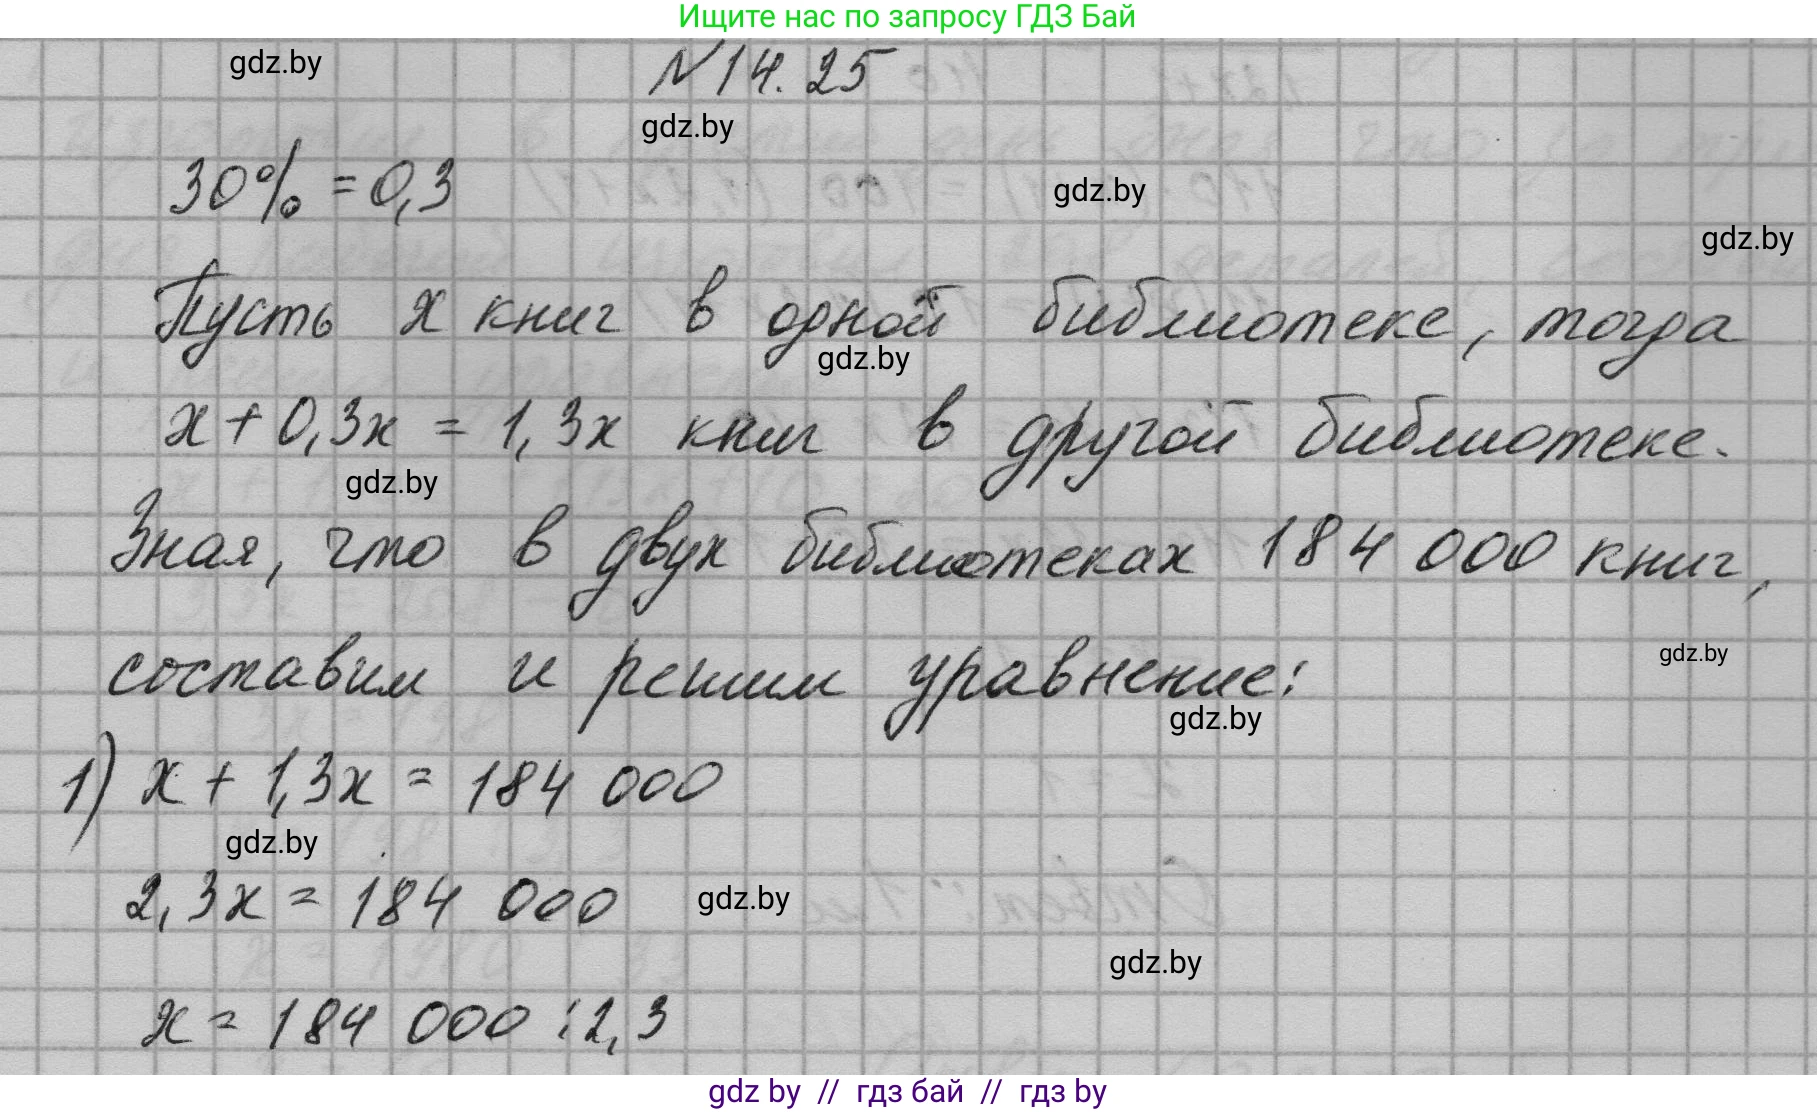 Ищите нас по запросу ГДЗ Бай
gdz.by
№14.25
gdz.by
30% = 0,3
gdz.by
gdz.by
Пусть x книг в одной библиотеке, тогда
gdz.by
x + 0,3x = 1,3x книг в другой библиотеке.
gdz.by
Зная, что в двух библиотеках 184 000 книг,
gdz.by
составим и решим уравнение:
gdz.by
1) x + 1,3x = 184 000
gdz.by
2,3x = 184 000
gdz.by
gdz.by
x = 184 000 : 2,3
gdz by // гдз бай // гдз by